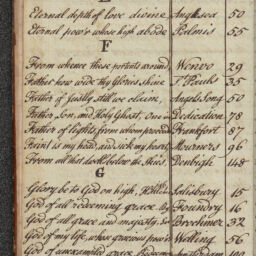 E
Eternal depth of love divine Angls sea 50
Eternal pow'r whose high abode Palmis 55
F
From whence these portents around Wenvo 29
Father how wide thy Glories shine St Pauls 35
Father if justly still we claim, Angels Song 50
Father, Son, and Holy Ghost, One in Dedication 78
Father of lights from whom proceed Frankfort 87
Faint is my head, and sick my heart Mourners 96
From all that dwell below the Skies Denbigh 148
G
Glory be to God on high, Salisbury 15
God of all redeeming grace By Foundry 16
God of all grace and majesty, So Brockmer 32
God of my life, whose gracious pow'r Welling 56
God of unexampled grace Redeemer Amsterdam 100